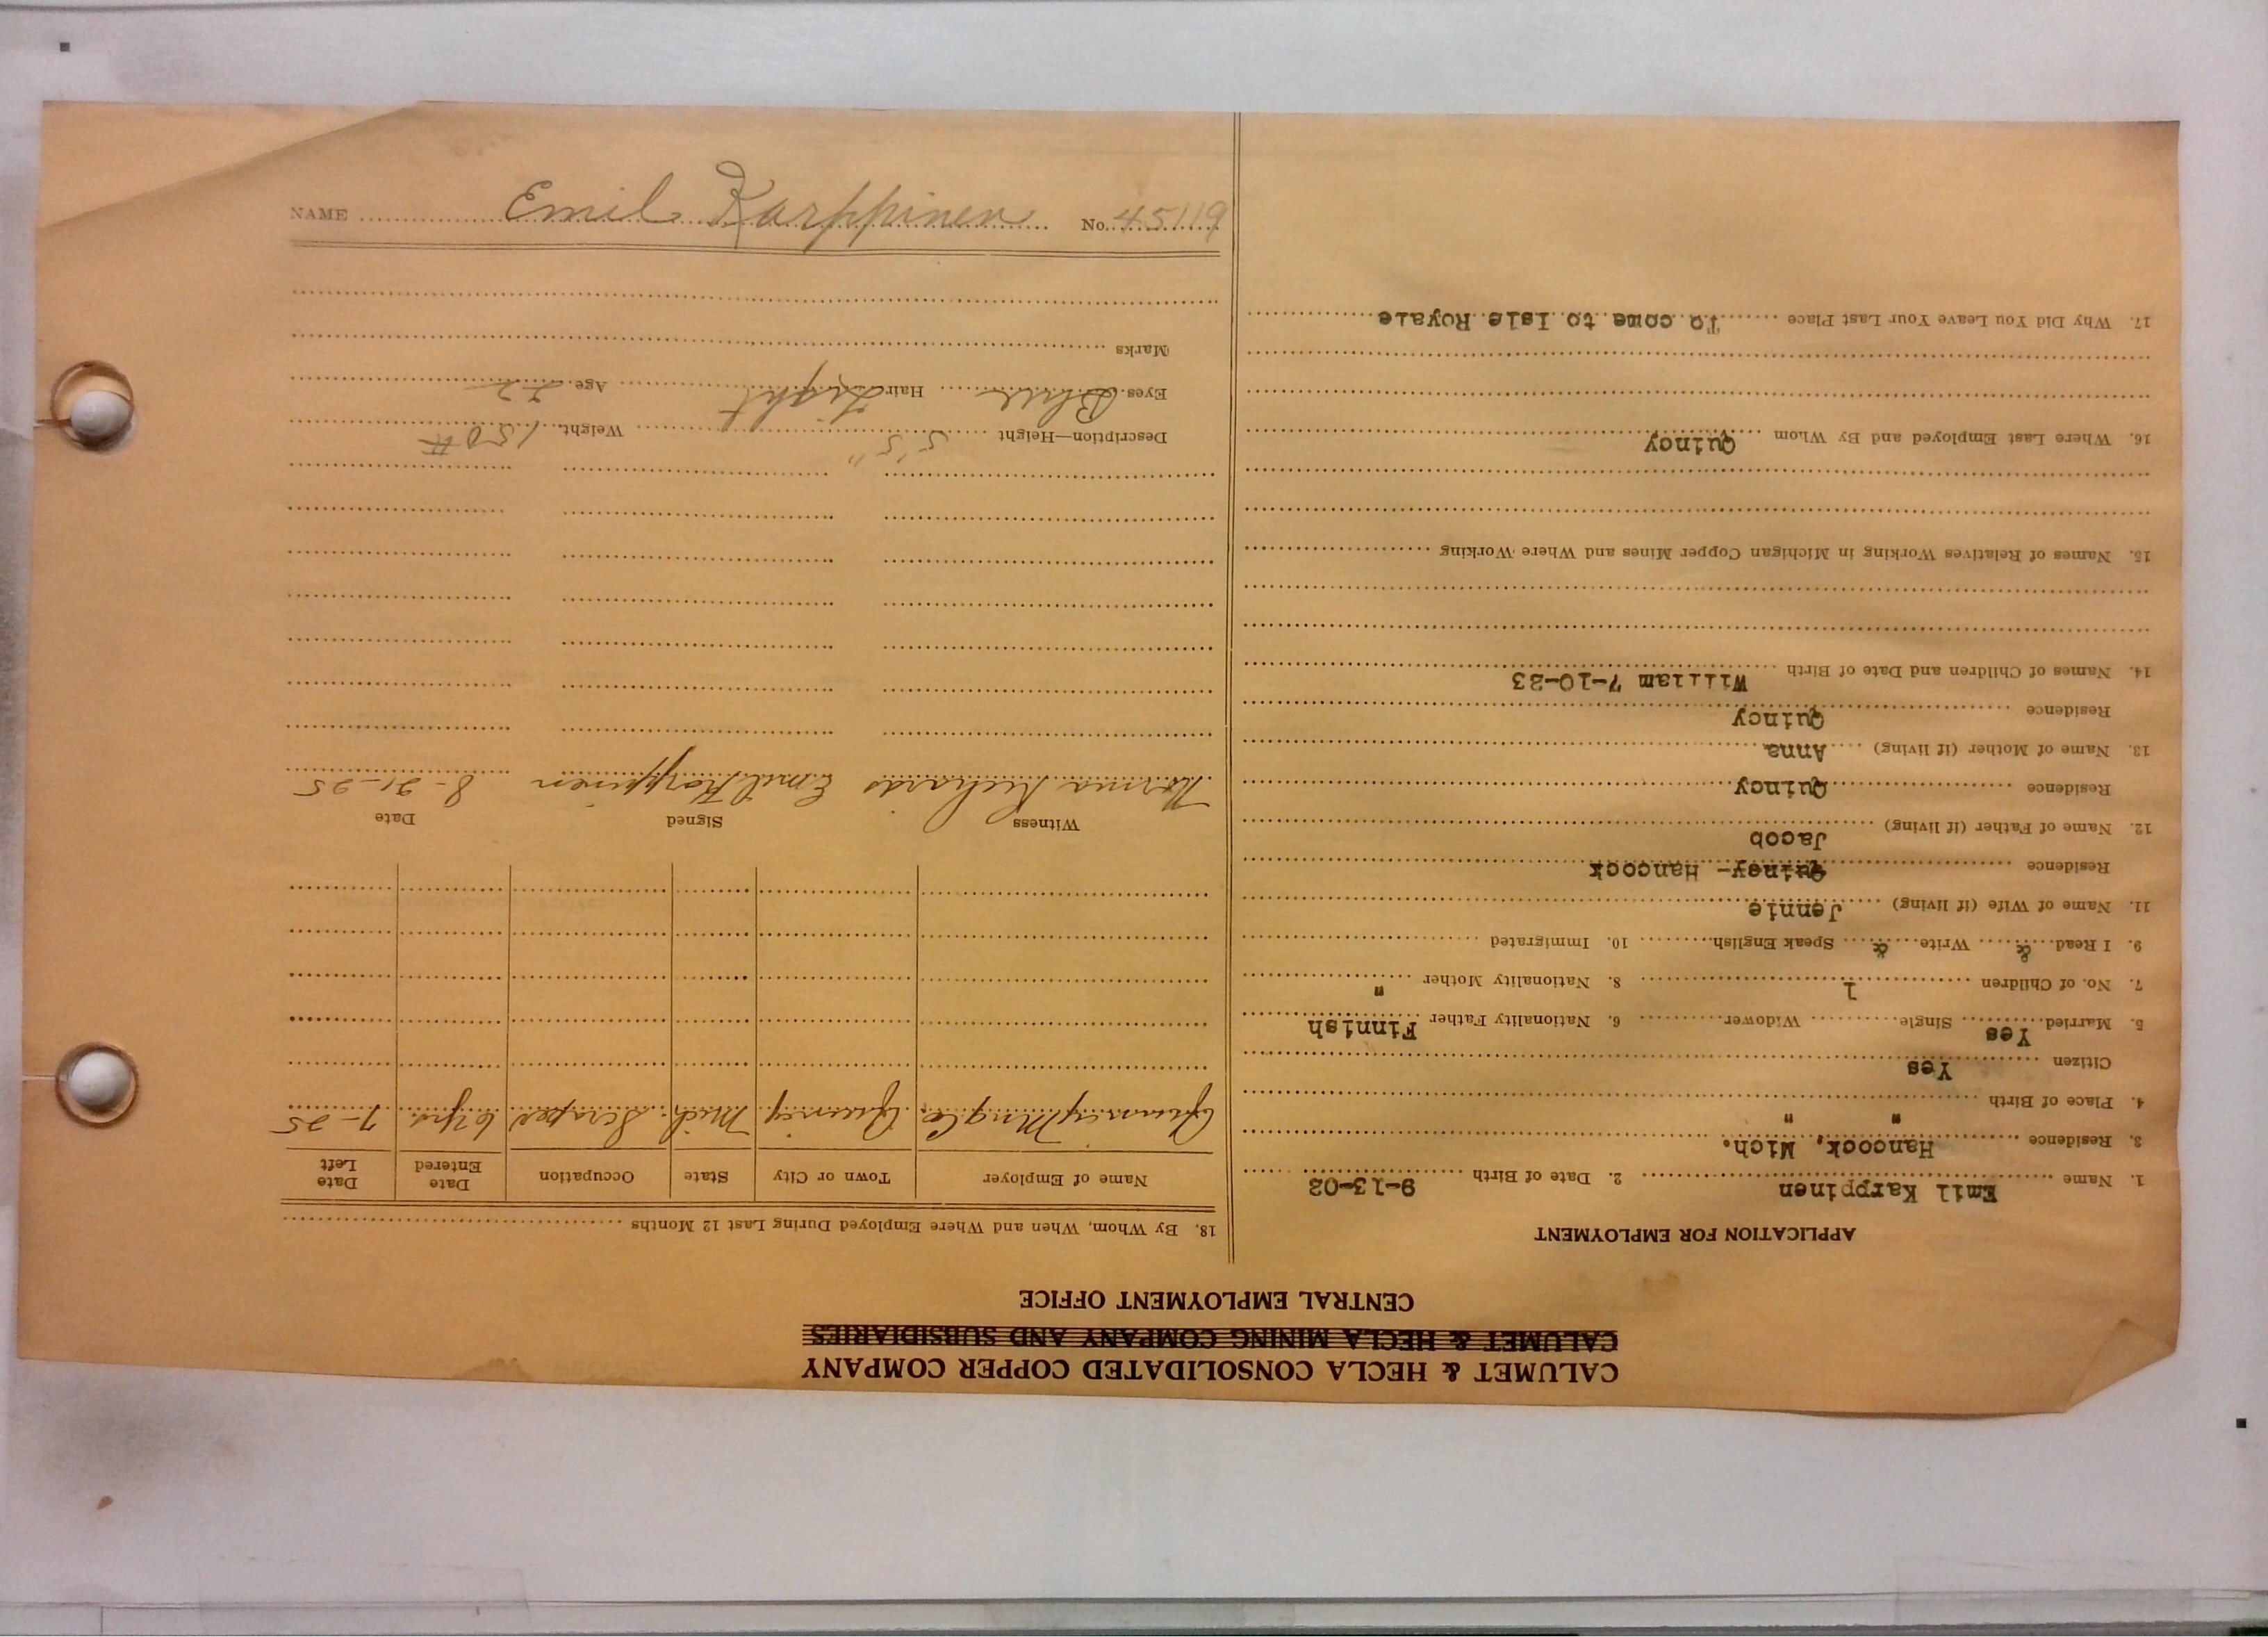 CALUMET & HECLA CONSOLIDATED COPPER COMPANY
CALUMET & HECLA MINING COMPANY AND SUBSIDIARIES
CENTRAL EMPLOYMENT OFFICE
APPLICATION FOR EMPLOYMENT
1. Name Emil Karppinen 2. Date of Birth 9-13-02
3. Residence Hancock, Mich.
4. Place of Birth " "
Citizen Yes
5. Married Yes Single Widower 6. Nationality Father Finnish
7. No. of Children 1 8. Nationality Mother "
9. I Read & Write & Speak English 10. Immigrated
11. Name of Wife (if living) Jennie
Residence Quincy- Hancock
12. Name of Father (if living) Jacob
Residence Quincy
13. Name of Mother (if living) Anna
Residence Quincy
14. Names of Children and Date of Birth William 7-10-23
15. Names of Relatives Working in Michigan Copper Mines and Where Working
16. Where Last Employed and By Whom Quincy
17. Why Did You Leave Your Last Place To come to Isle Royale
18. By Whom, When and Where Employed During Last 12 Months
Name of Employer Town or City State Occupation Date Entered Date Left
Quincy Mng Co. Quincy Mich. Scraper 6 yrs. 7-25
Witness Signed Date
Norma Richards Emil Karppinen 8-21-25
Description—Height 5'5" Weight 150 #
Eyes Blue Hair Light Age 22
Marks
NAME Emil Karppinen No. 45119